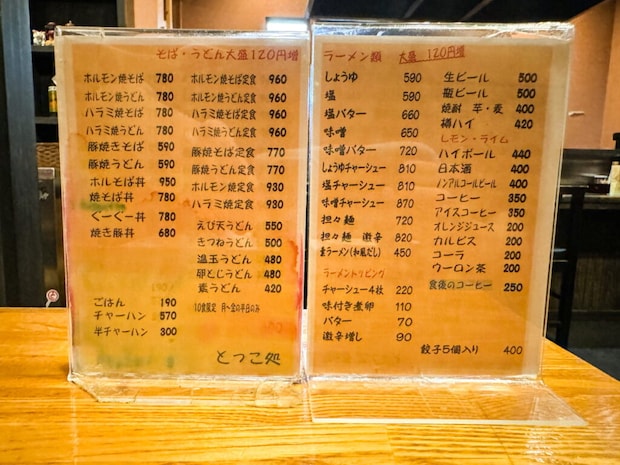 そば・うどん大盛120円増
ホルモン焼そば 780
ホルモン焼うどん 780
ハラミ焼そば 780
ハラミ焼うどん 780
豚焼きそば 590
豚焼うどん 590
ホルそば丼 950
焼そば丼 780
ぐーぐー丼 780
焼き豚丼 680
ごはん 190
チャーハン 570
半チャーハン 300
ホルモン焼そば定食 960
ホルモン焼うどん定食 960
ハラミ焼そば定食 960
ハラミ焼うどん定食 960
豚焼そば定食 770
豚焼うどん定食 770
ホルモン焼定食 930
ハラミ焼定食 930
えび天うどん 550
きつねうどん 500
温玉うどん 480
卵とじうどん 480
素うどん 420
10食限定 月〜金の平日のみ
とつこ処
ラーメン類 大盛 120円増
しょうゆ 590
塩 590
塩バター 660
味噌 650
味噌バター 720
しょうゆチャーシュー 810
塩チャーシュー 810
味噌チャーシュー 870
担々麺 720
担々麺 激辛 820
素ラーメン(和風だし) 450
ラーメントッピング
チャーシュー4枚 220
味付き煮卵 110
バター 70
激辛増し 90
生ビール 500
瓶ビール 500
焼酎 芋・麦 400
樽ハイ 420
レモン・ライム
ハイボール 440
日本酒 400
ノンアルコールビール 400
コーヒー 350
アイスコーヒー 350
オレンジジュース 200
カルピス 200
コーラ 200
ウーロン茶 200
食後のコーヒー 250
餃子5個入り 400